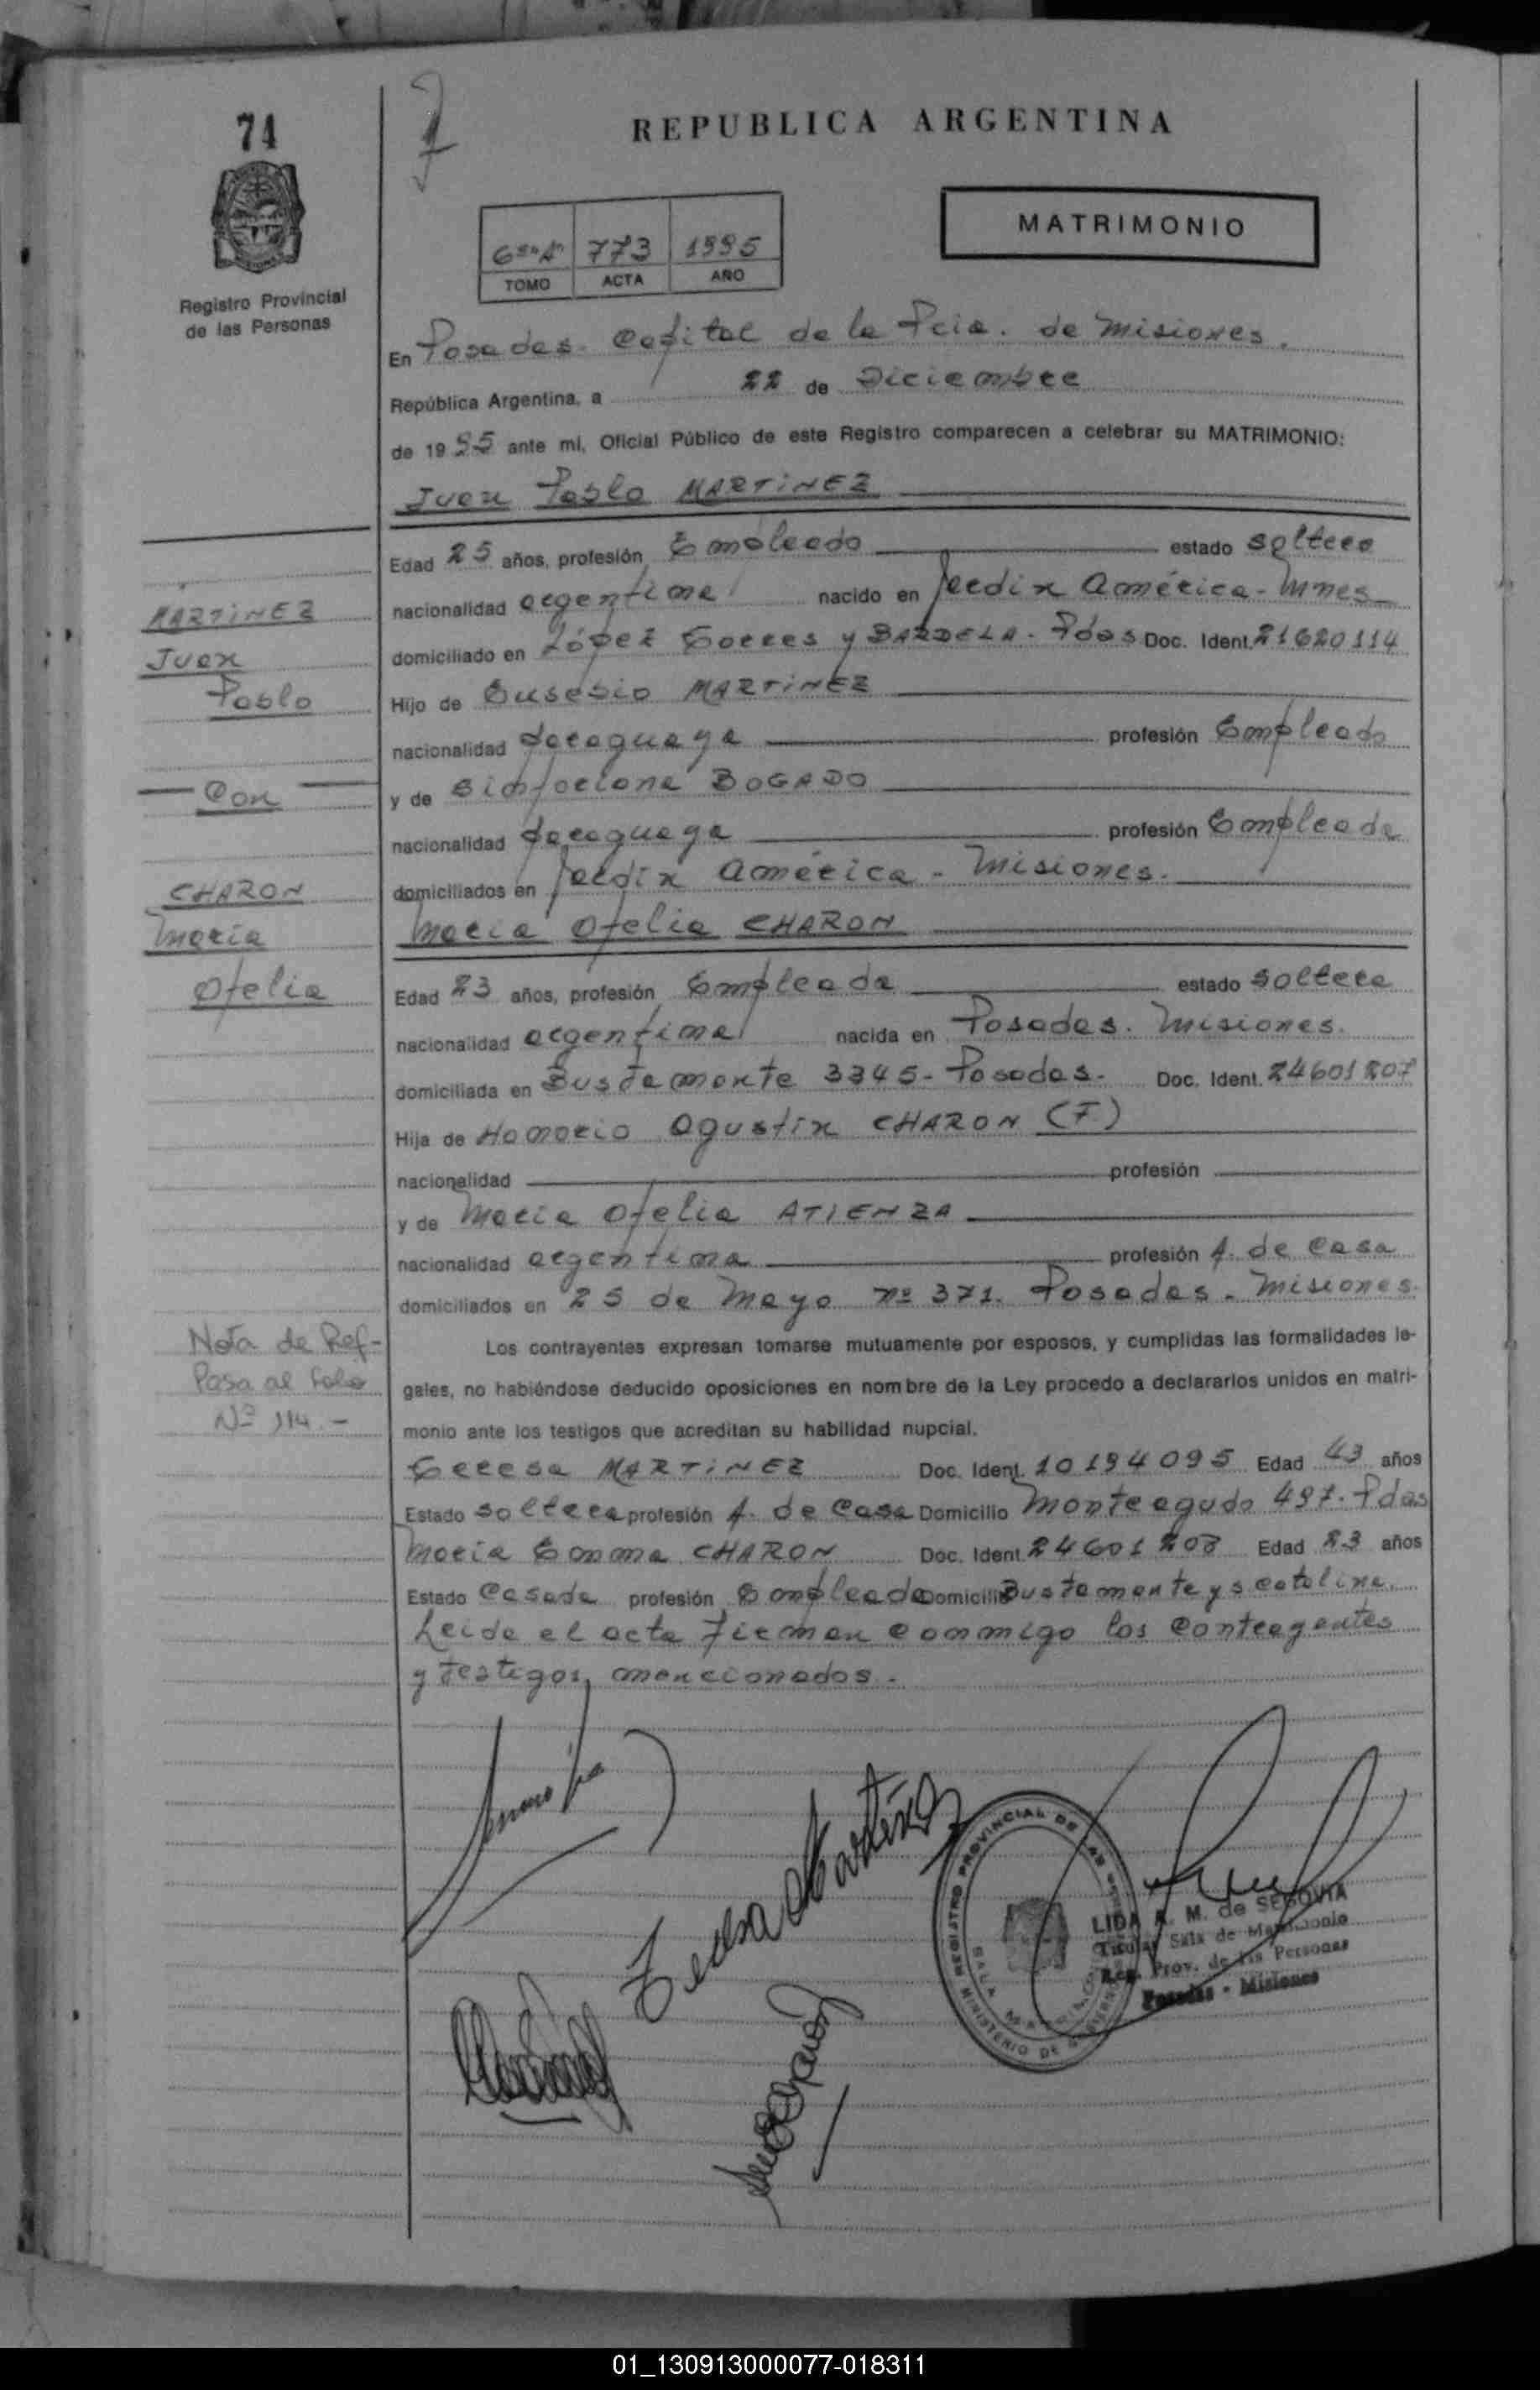 74
REPUBLICA ARGENTINA
MATRIMONIO
773 1995
TOMO ACTA AÑO
Registro Provincial
de las Personas
En Posadas. Capital de la Pcia. de Misiones.
República Argentina, a 22 de Diciembre
de 1995 ante mí, Oficial Público de este Registro comparecen a celebrar su MATRIMONIO:
Juan Pablo MARTINEZ
Edad 25 años, profesión Empleado estado soltero
nacionalidad argentina nacido en Jardin América - Mnes
domiciliado en López Torres y BARDELA - Pdas Doc. Ident. 21620114
Hijo de Eusebio MARTINEZ
nacionalidad paraguaya profesión Empleado
y de BOGADO
nacionalidad paraguaya profesión Empleada
domiciliados en Jardin América - Misiones.
Maria Ofelia CHARON
Edad 23 años, profesión Empleada estado soltera
nacionalidad argentina nacida en Posadas. Misiones.
domiciliada en Bustamante 3345 - Posadas. Doc. Ident. 24601207
Hija de Honorio Agustin CHARON (F)
nacionalidad profesión
y de Maria Ofelia ATIENZA
nacionalidad argentina profesión A. de Casa
domiciliados en 25 de Mayo nº 371. Posadas. Misiones.
Los contrayentes expresan tomarse mutuamente por esposos, y cumplidas las formalidades le-
gales, no habiéndose deducido oposiciones en nombre de la Ley procedo a declararlos unidos en matri-
monio ante los testigos que acreditan su habilidad nupcial.
Teresa MARTINEZ Doc. Ident. 10194095 Edad 43 años
Estado soltera profesión A. de Casa Domicilio Monteagudo 497. Pdas
Maria Emma CHARON Doc. Ident 24601208 Edad 23 años
Estado Casada profesión Empleada Domicilio Bustamante y s catalina.
Leida el acta Firman conmigo los Contrayentes
y testigos mencionados.
MARTINEZ
Juan
Pablo
Con
CHARON
Maria
Ofelia
Nota de Ref-
Pasa al folio
Nº 114.-
Teresa Martínez
REGISTRO PROVINCIAL DE LAS
MINISTERIO DE
SALA
LIDA A. M. de SEGOVIA
Titular Sala de Matrimonio
Reg. Prov. de las Personas
Posadas - Misiones
01_130913000077-018311